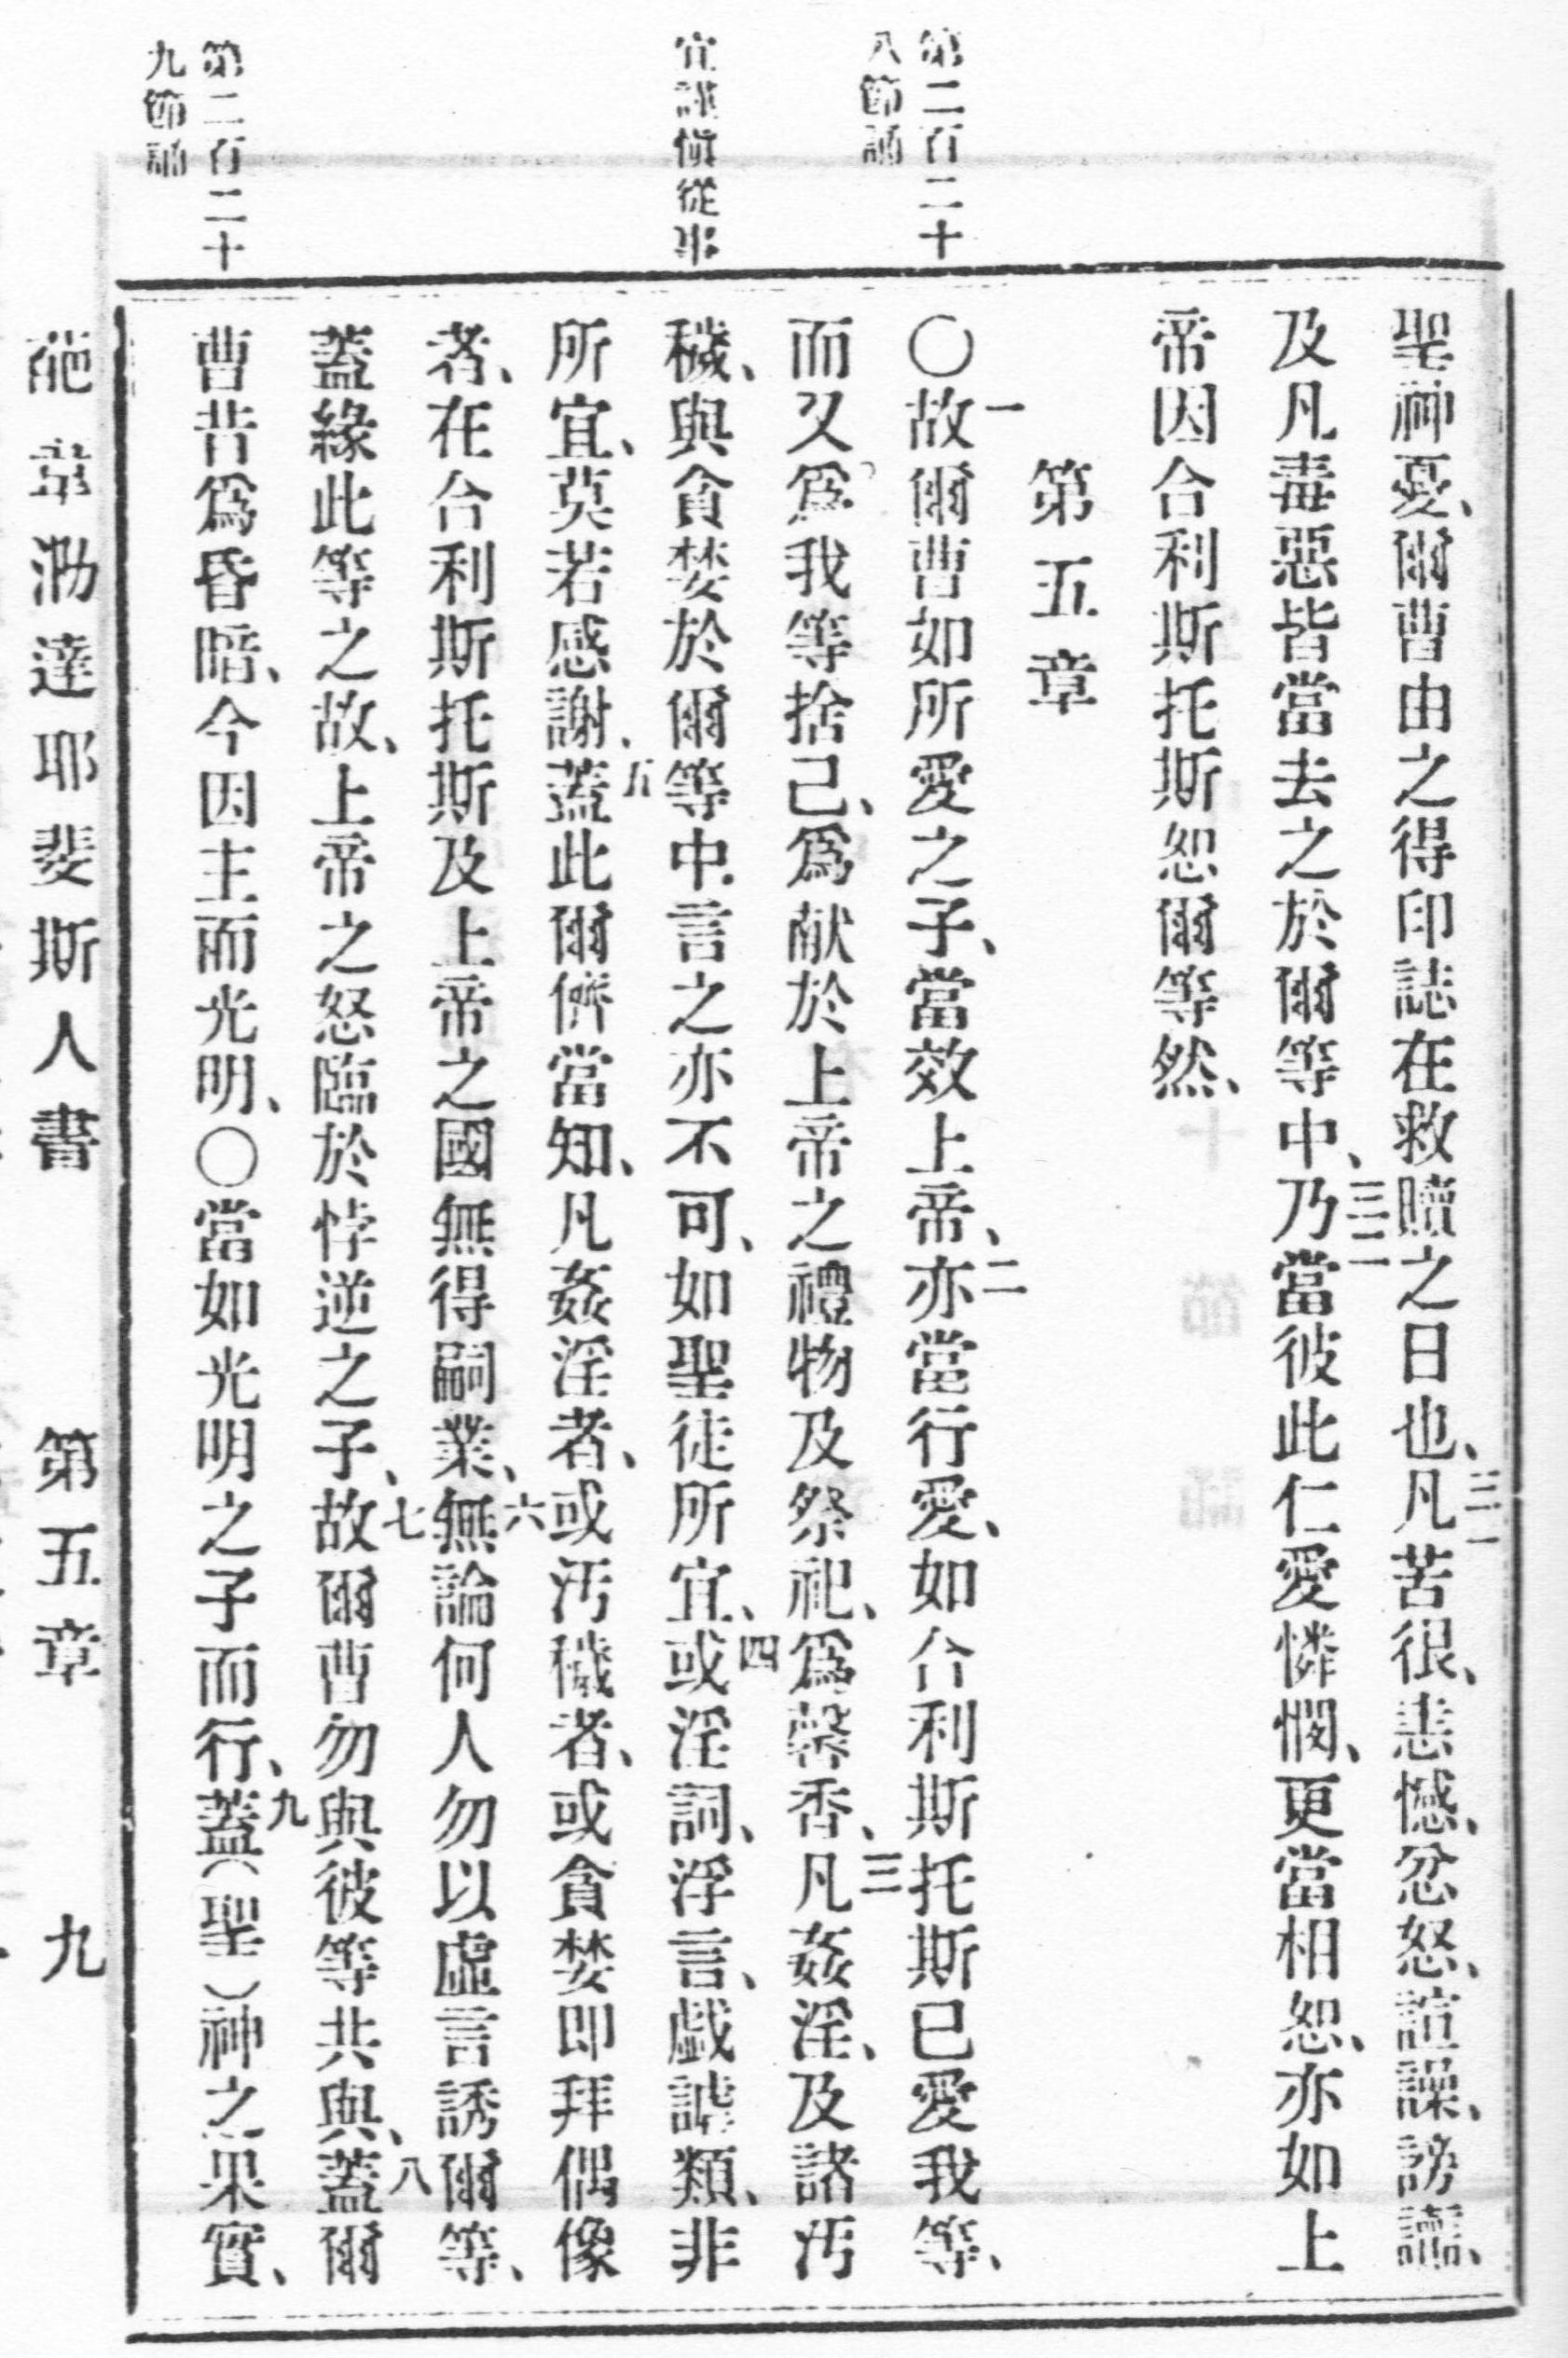 第二百二十
八節誦
宜謹慎從事
第二百二十
九節誦
聖神憂、爾曹由之得印誌在救贖之日也、三一凡苦很、恚憾、忿怒、諠譟、謗讟、
及凡毒惡皆當去之於爾等中、三二乃當彼此仁愛憐憫、更當相恕、亦如上
帝因合利斯托斯恕爾等然、
第五章
〇一故爾曹如所愛之子、當效上帝、二亦當行愛、如合利斯托斯已愛我等、
而又爲我等捨己、爲献於上帝之禮物及祭祀、爲馨香、三凡姦淫、及諸汚
穢、與貪婪於爾等中、言之亦不可、如聖徒所宜、四或淫詞、浮言、戲謔類、非
所宜、莫若感謝、五蓋此爾儕當知、凡姦淫者、或汚穢者、或貪婪即拜偶像
者、在合利斯托斯及上帝之國無得嗣業、六無論何人勿以虛言誘爾等、
蓋緣此等之故、上帝之怒臨於悖逆之子、七故爾曹勿與彼等共與、八蓋爾
曹昔爲昏暗、今因主而光明、〇當如光明之子而行、九蓋(聖)神之果實、
葩韋泐達耶斐斯人書 第五章 九